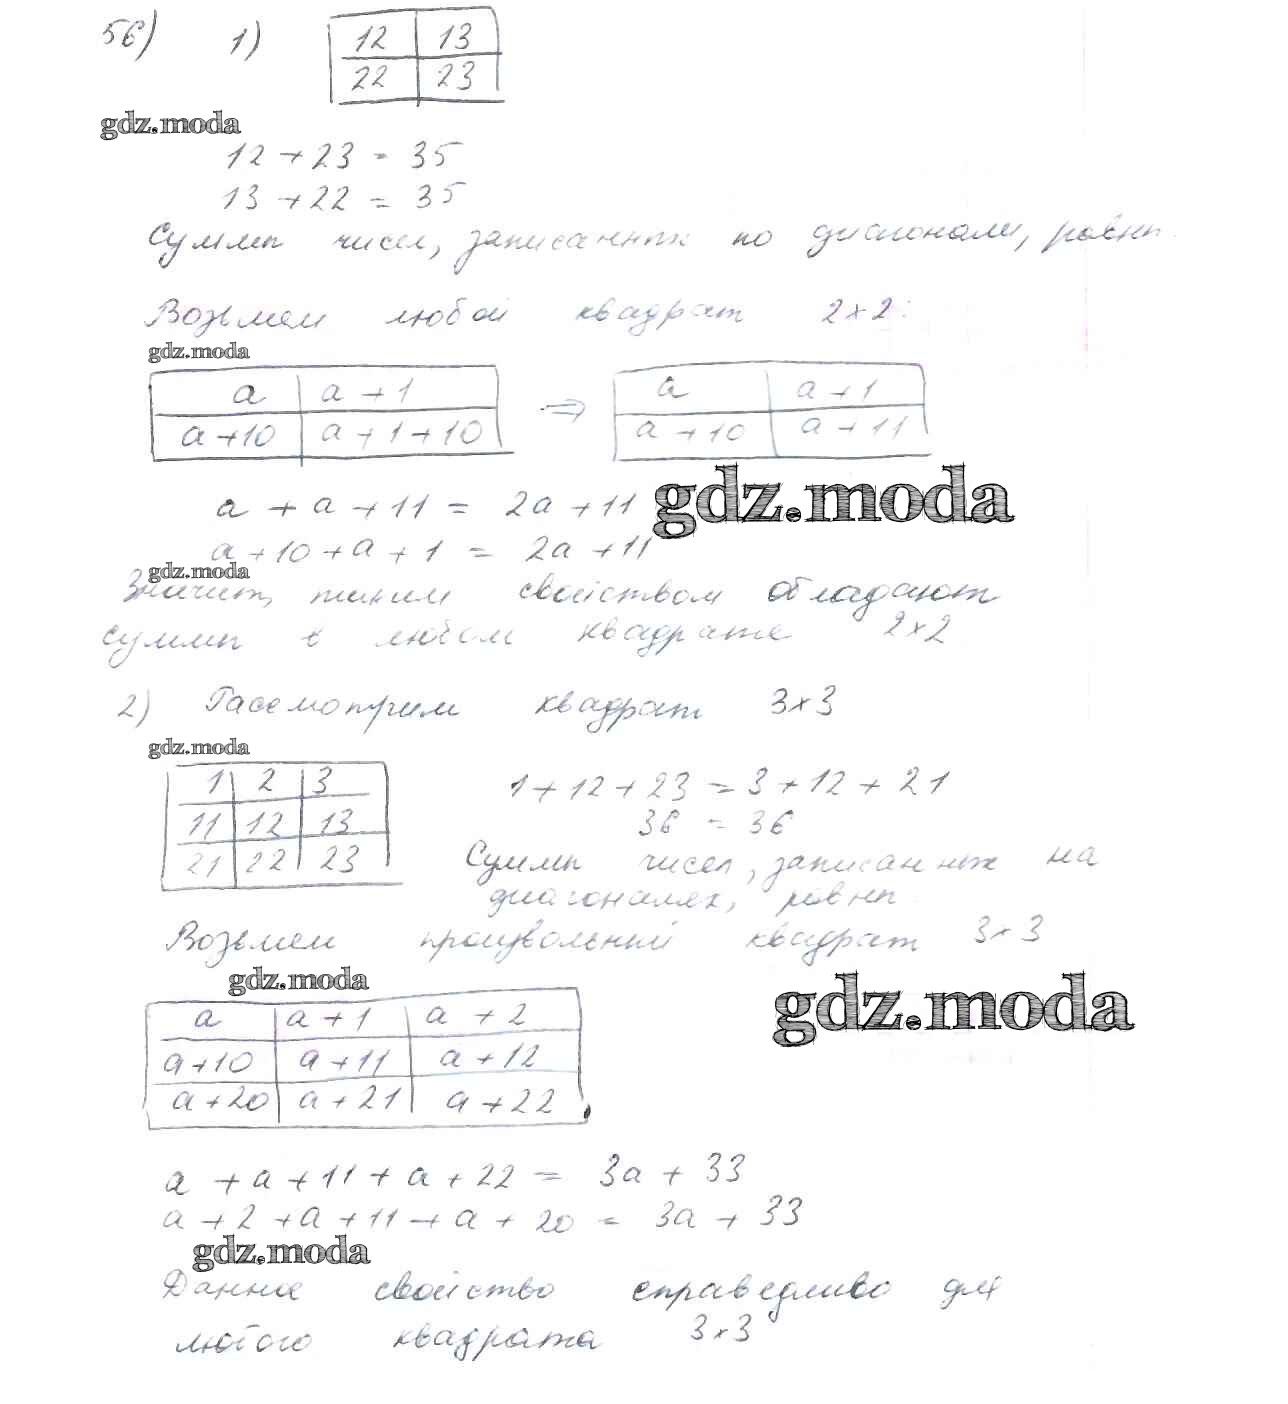 56) 1) 12 13
22 23
gdz.moda
12 + 23 = 35
13 + 22 = 35
Суммы чисел, записанных по диагонали, равны.
Возьмем любой квадрат 2×2:
gdz.moda
a a + 1 ⇒ a a + 1
a + 10 a + 1 + 10 a + 10 a + 11
gdz.moda
a + a + 11 = 2a + 11
a + 10 + a + 1 = 2a + 11
gdz.moda
Значит, таким свойством обладают
суммы в любом квадрате 2×2
2) Рассмотрим квадрат 3×3
gdz.moda
1 2 3
11 12 13
21 22 23
1 + 12 + 23 = 3 + 12 + 21
36 = 36
Суммы чисел, записанных на
диагоналях, равны.
Возьмем произвольный квадрат 3×3
gdz.moda
gdz.moda
a a + 1 a + 2
a + 10 a + 11 a + 12
a + 20 a + 21 a + 22
a + a + 11 + a + 22 = 3a + 33
a + 2 + a + 11 + a + 20 = 3a + 33
gdz.moda
Данное свойство справедливо для
любого квадрата 3×3